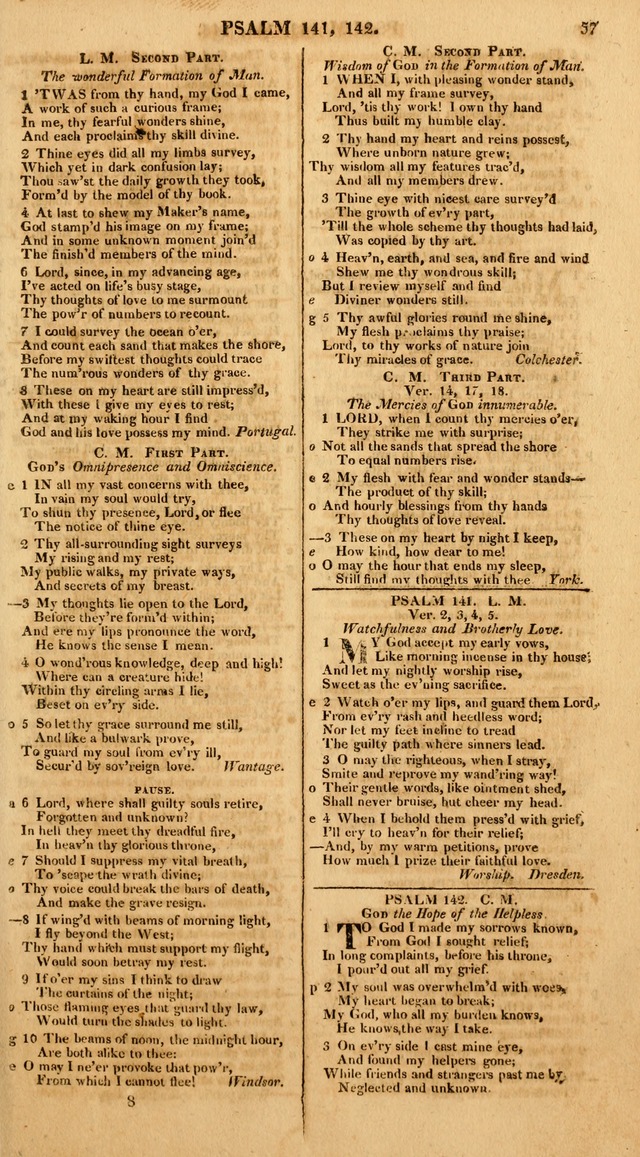 PSALM 141, 142. 57
L. M. Second Part.
The wonderful Formation of Man.
1 'TWAS from thy hand, my God I came,
A work of such a curious frame;
In me, thy fearful wonders shine,
And each proclaims thy skill divine.
2 Thine eyes did all my limbs survey,
Which yet in dark confusion lay;
Thou saw'st the daily growth they took,
Form'd by the model of thy book.
4 At last to shew my Maker's name,
God stamp'd his image on my frame;
And in some unknown moment join'd
The finish'd members of the mind.
6 Lord, since, in my advancing age,
I've acted on life's busy stage,
Thy thoughts of love to me surmount
The pow'r of numbers to recount.
7 I could survey the ocean o'er,
And count each sand that makes the shore,
Before my swiftest thoughts could trace
The num'rous wonders of thy grace.
8 These on my heart are still impress'd,
With these I give my eyes to rest;
And at my waking hour I find
God and his love possess my mind. Portugal.
C. M. First Part.
God's Omnipresence and Omniscience.
e 1 IN all my vast concerns with thee,
In vain my soul would try,
To shun thy presence, Lord, or flee
The notice of thine eye.
2 Thy all-surrounding sight surveys
My rising and my rest;
My public walks, my private ways,
And secrets of my breast.
—3 My thoughts lie open to the Lord,
Before they're form'd within;
And ere my lips pronounce the word,
He knows the sense I mean.
4 O wond'rous knowledge, deep and high!
Where can a creature hide!
Within thy circling arms I lie,
Beset on ev'ry side.
o 5 So let thy grace surround me still,
And like a bulwark prove,
To guard my soul from ev'ry ill,
Secur'd by sov'reign love. Wantage.
PAUSE.
a 6 Lord, where shall guilty souls retire,
Forgotten and unknown?
In hell they meet thy dreadful fire,
In heav'n thy glorious throne,
e 7 Should I suppress my vital breath,
To 'scape the wrath divine;
o Thy voice could break the bars of death,
And make the grave resign.
—8 If wing'd with beams of morning light,
I fly beyond the West;
Thy hand which must support my flight,
Would soon betray my rest.
9 If o'er my sins I think to draw
The curtains of the night;
o Those flaming eyes that guard thy law,
Would turn the shades to light.
g 10 The beams of noon, the midnight hour,
Are both alike to thee:
e O may I ne'er provoke that pow'r,
From which I cannot flee! Windsor.
8
C. M. Second Part.
Wisdom of God in the Formation of Man.
1 WHEN I, with pleasing wonder stand,
And all my frame survey,
Lord, 'tis thy work! I own thy hand
Thus built my humble clay.
2 Thy hand my heart and reins possest,
Where unborn nature grew;
Thy wisdom all my features trac'd,
And all my members drew.
3 Thine eye with nicest care survey'd
The growth of ev'ry part,
'Till the whole scheme thy thoughts had laid,
Was copied by thy art.
o 4 Heav'n, earth, and sea, and fire and wind
Shew me thy wondrous skill;
But I review myself and find
e Diviner wonders still.
g 5 Thy awful glories round me shine,
My flesh proclaims thy praise;
Lord, to thy works of nature join
Thy miracles of grace. Colchester.
C. M. Third Part.
Ver. 14, 17, 18.
The Mercies of God innumerable.
1 LORD, when I count thy mercies o'er,
They strike me with surprise;
o Not all the sands that spread the shore
To equal numbers rise.
e 2 My flesh with fear and wonder stands—
The product of thy skill;
o And hourly blessings from thy hands
Thy thoughts of love reveal.
—3 These on my heart by night I keep,
e How kind, how dear to me!
o O may the hour that ends my sleep,
Still find my thoughts with thee York.
PSALM 141. L. M.
Ver. 2, 3, 4, 5.
Watchfulness and Brotherly Love.
1 MY God accept my early vows,
Like morning incense in thy house;
And let my nightly worship rise,
Sweet as the ev'ning sacrifice.
e 2 Watch o'er my lips, and guard them Lord,
From ev'ry rash and heedless word;
Nor let my feet incline to tread
The guilty path where sinners lead.
3 O may the righteous, when I stray,
Smite and reprove my wand'ring way!
o Their gentle words, like ointment shed,
Shall never bruise, but cheer my head.
e 4 When I behold them press'd with grief,
I'll cry to heav'n for their relief;
—And, by my warm petitions, prove
How much I prize their faithful love.
Worship. Dresden.
PSALM 142. C. M.
God the Hope of the Helpless.
1 TO God I made my sorrows known,
From God I sought relief;
In long complaints, before his throne,
I pour'd out all my grief.
p 2 My soul was overwhelm'd with woes,
My heart began to break;
My God, who all my burden knows,
He knows the way I take.
3 On ev'ry side I cast mine eye,
And found my helpers gone;
While friends and strangers past me by
Neglected and unknown.